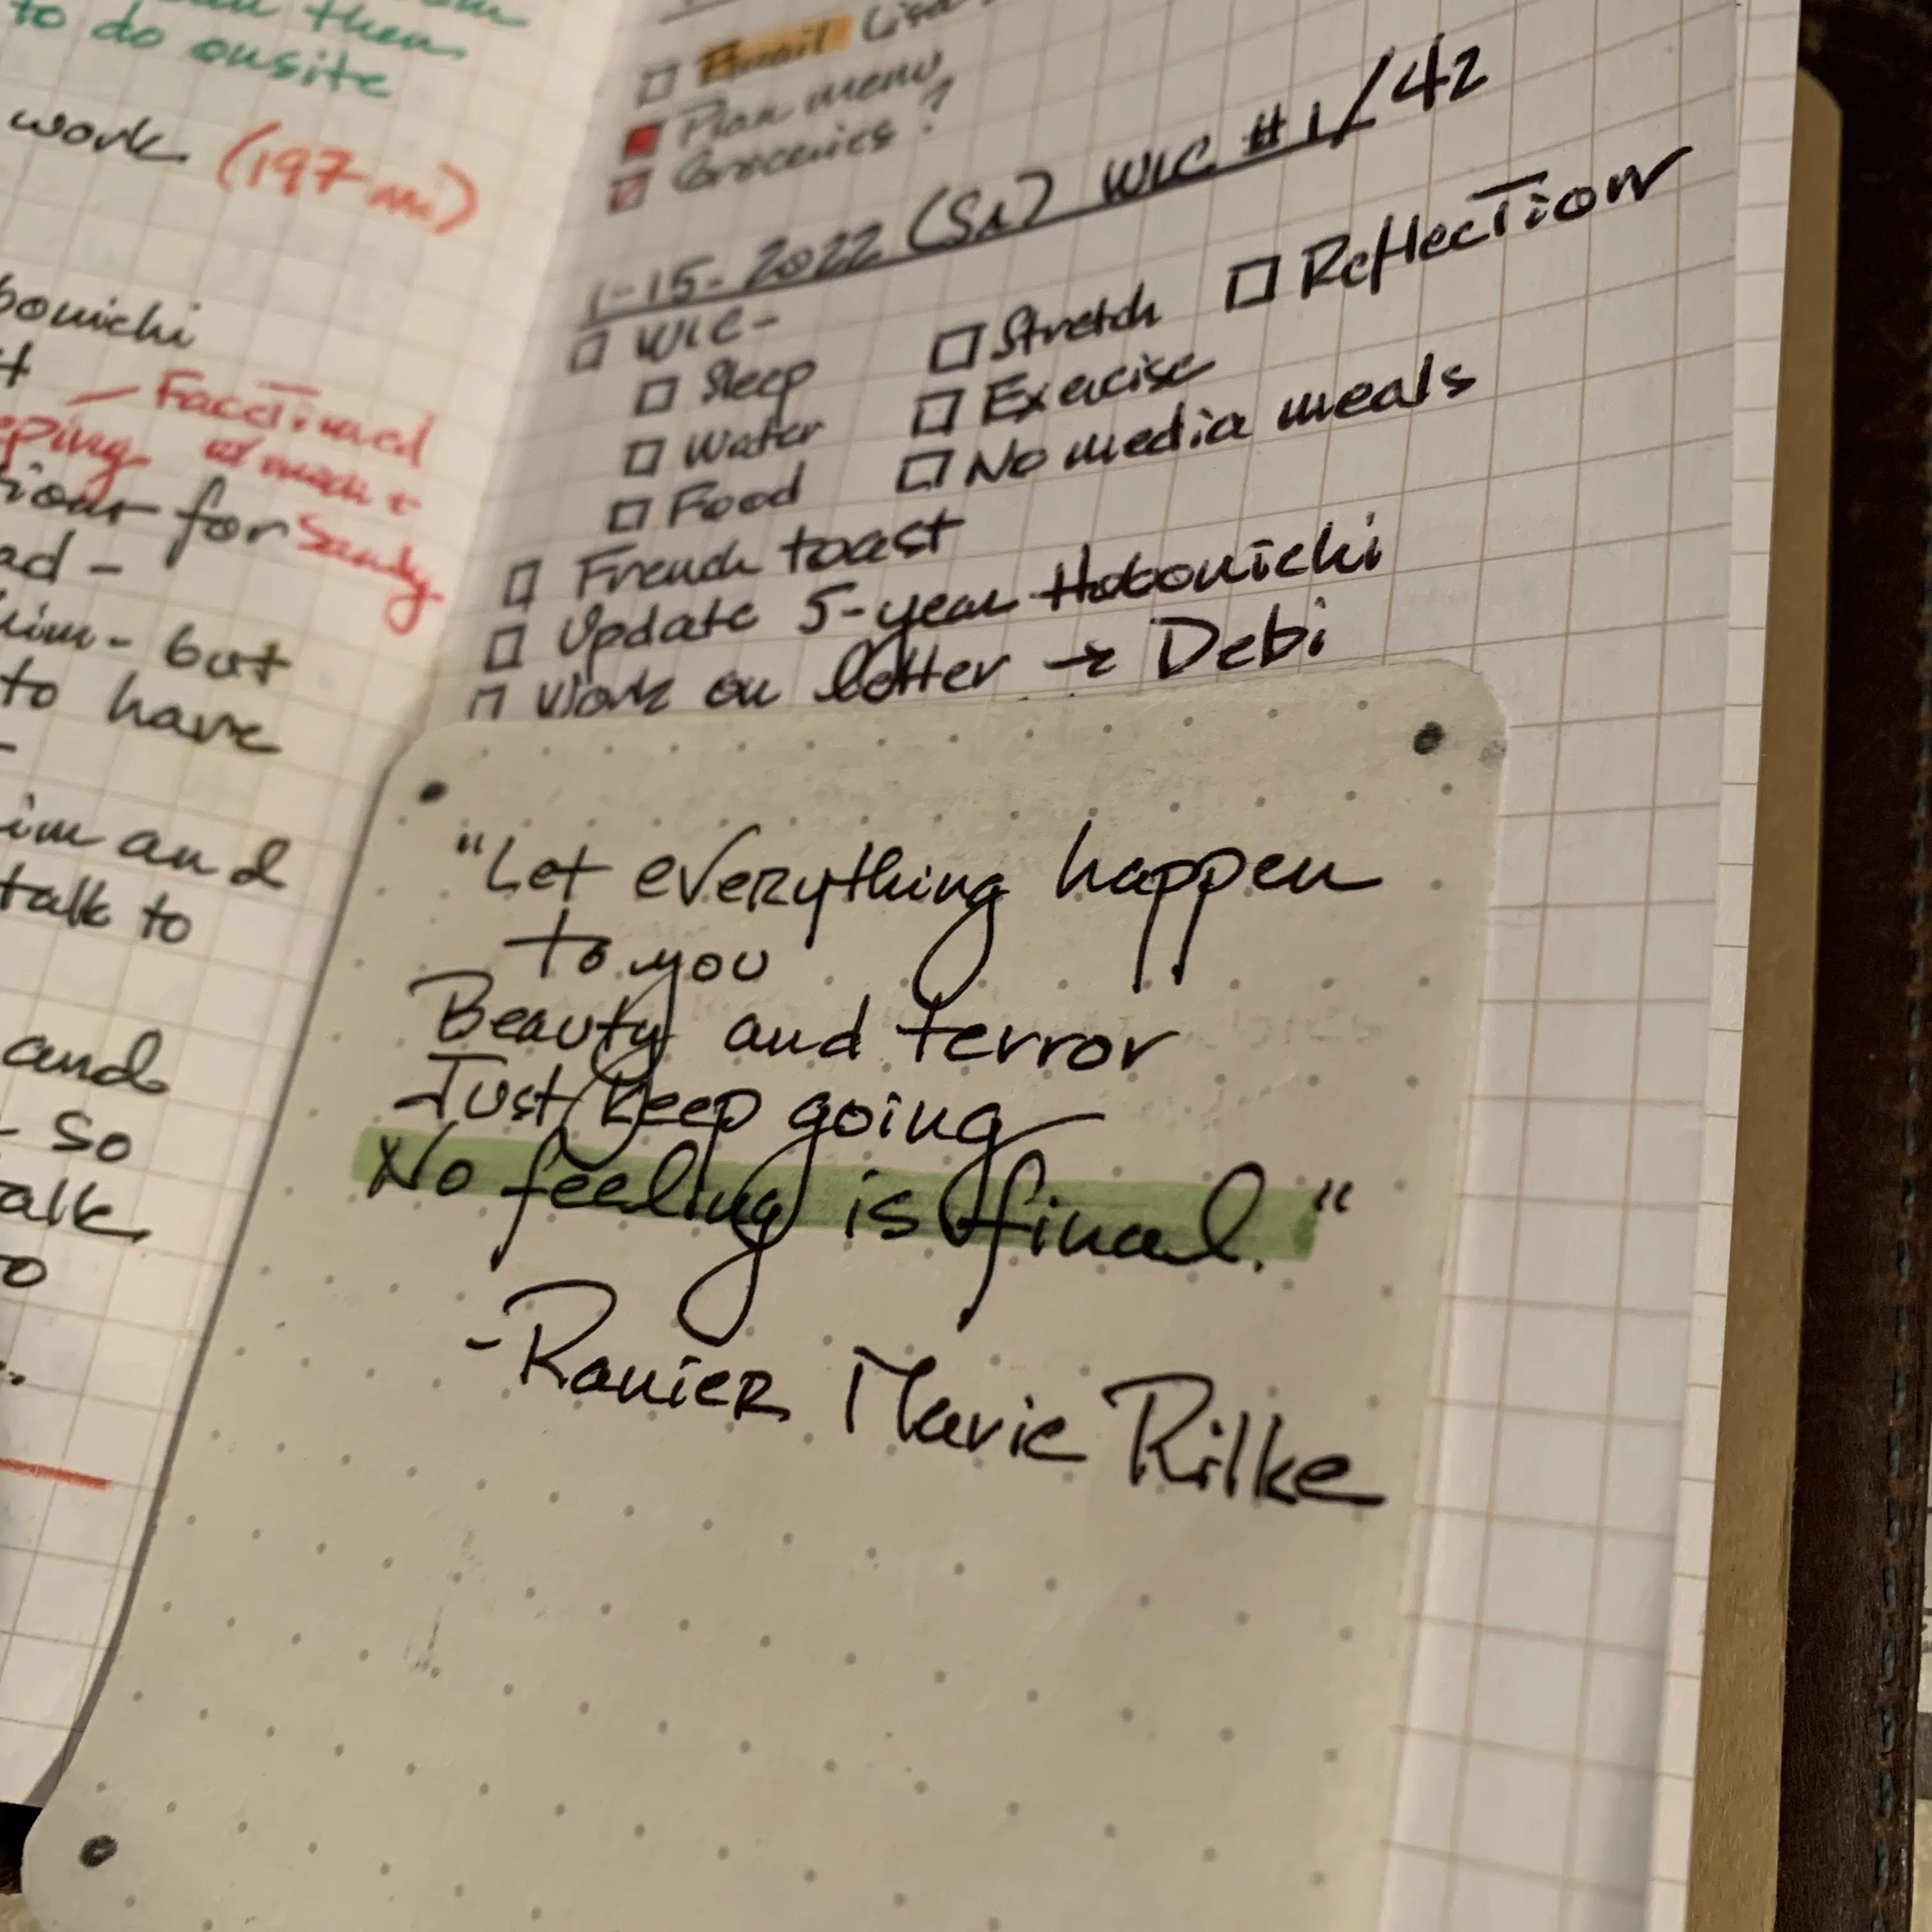 then
to do onsite
work (197 mi)
bonichi
- FaceTimed
for Sandy
ad -
him - but
to have
im and
talk to
and
- so
alk
to
□ Email Lisa
Plan menu
Groceries?
1-15-2022 (Sa) WLC #1/42
□ WLC-
□ Sleep □ Stretch □ Reflection
□ Water □ Exercise
□ Food □ No media meals
□ French toast
□ Update 5-year Hobonichi
□ Work on letter → Debi
"Let everything happen
to you
Beauty and terror
Just keep going
No feeling is final."
-Ranier Marie Rilke